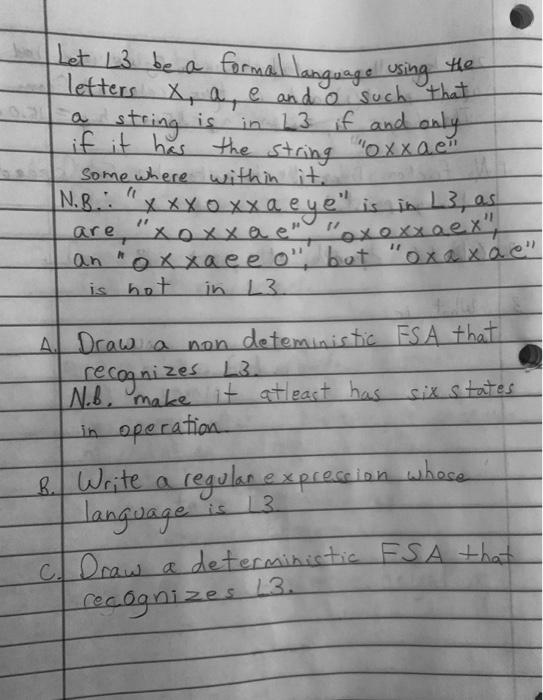 Let L3 be a formal language using the
letters x, a, e and o such that
a string is in L3 if and only
if it has the string "oxxae"
somewhere within it.
N.B.: "xxxoxxaeye" is in L3, as
are "xoxxae", "oxoxxaex",
an "oxxaeeo", but "oxaxae"
is not in L3.
A. Draw a non deteministic FSA that
recognizes L3.
N.B. make it atleast has six states
in operation.
B. Write a regular expression whose
language is L3.
C. Draw a deterministic FSA that
recognizes L3.